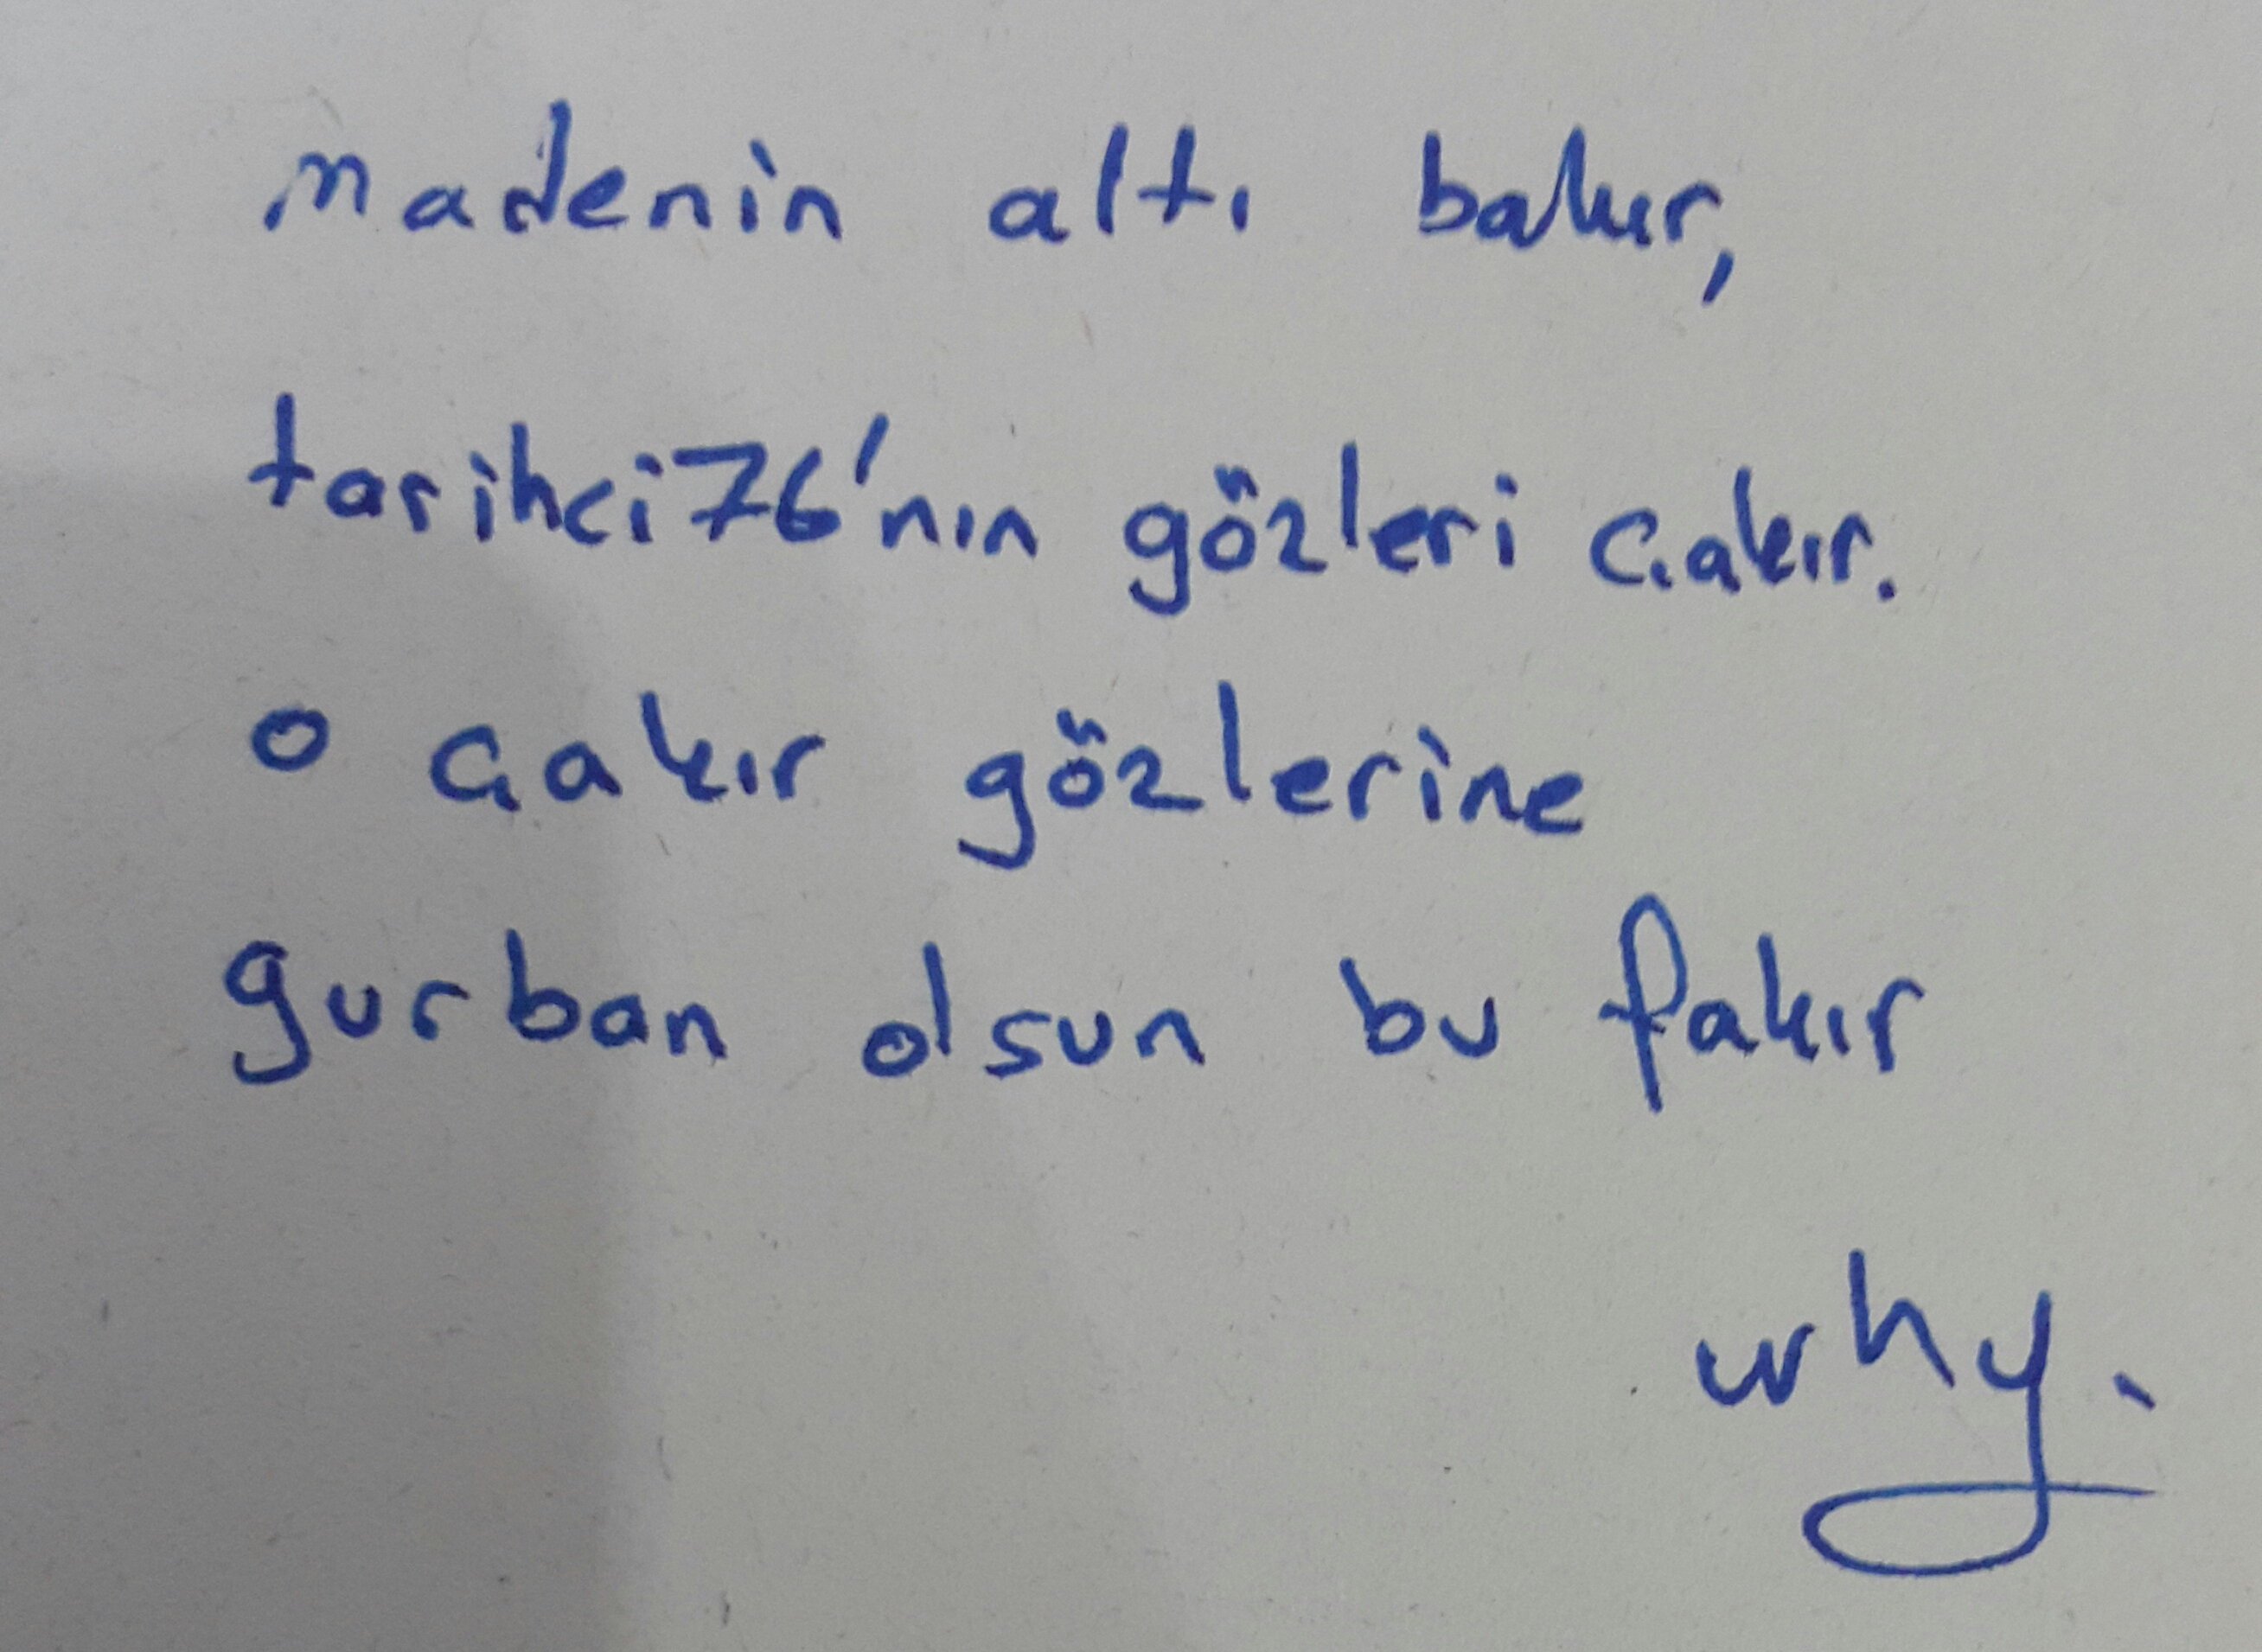 madenin altı bakır,
tarihci76'nın gözleri çakır.
o çakır gözlerine
gurban olsun bu fakır
why.